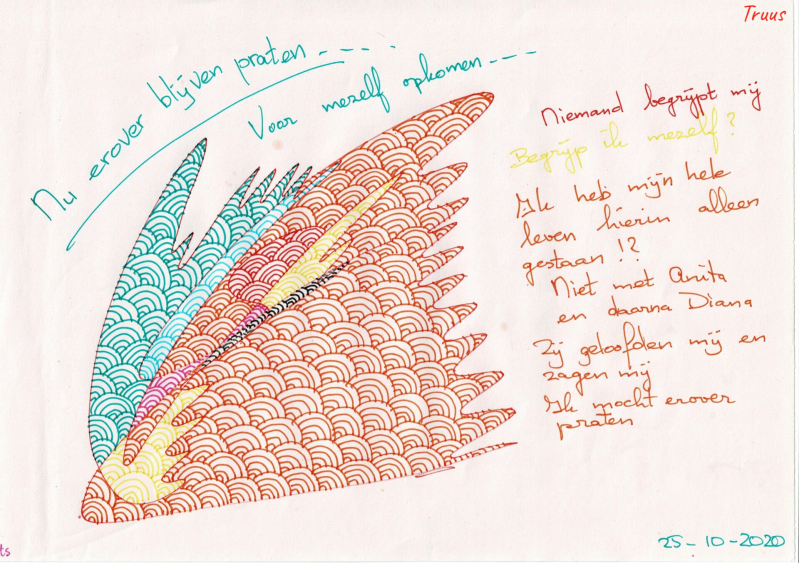 Truus
Nu erover blijven praten - - - -
Voor mezelf opkomen - - - -
Niemand begrijpt mij
Begrijp ik mezelf?
Ik heb mijn hele
leven hierin alleen
gestaan !?
Niet met Anita
en daarna Diana
Zij geloofden mij en
zagen mij
Ik mocht erover
praten
25-10-2020
ts